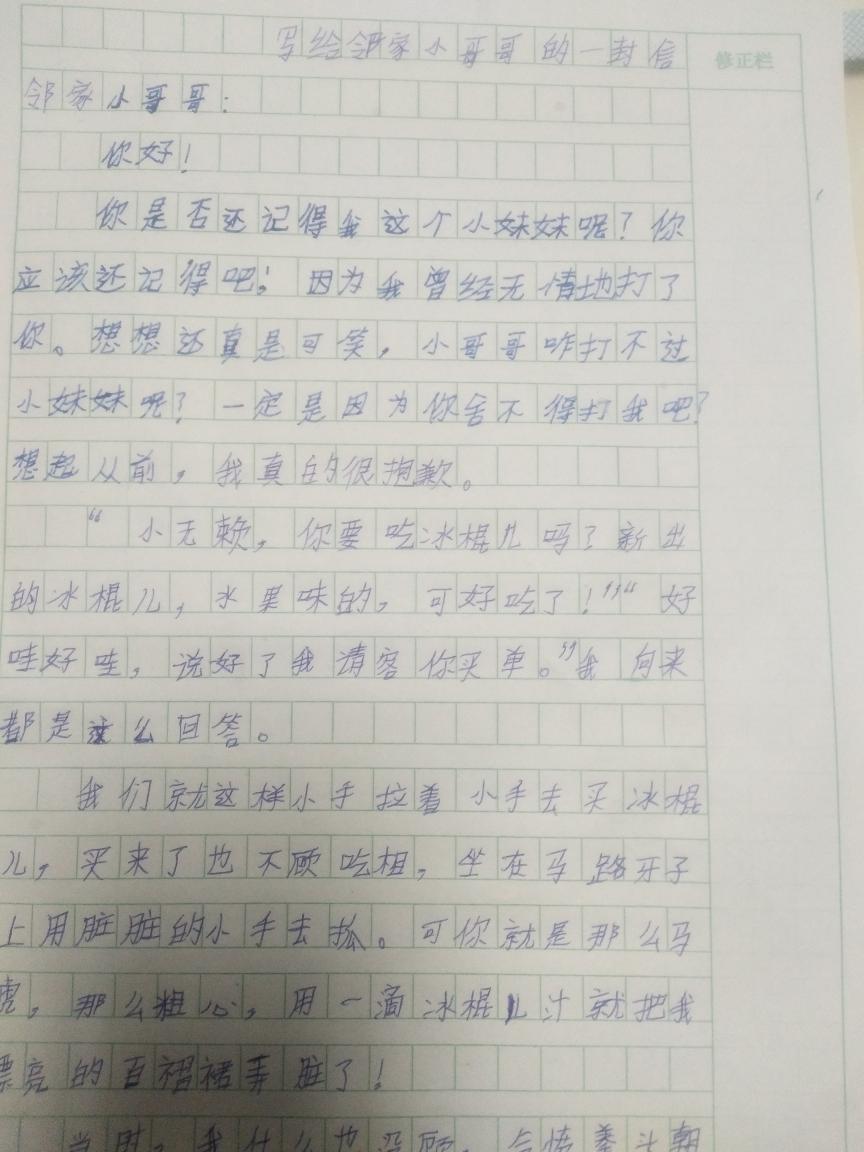 写给邻家小哥哥的一封信
修正栏
邻家小哥哥：
你好！
你是否还记得我这个小妹妹呢？你
应该还记得吧！因为我曾经无情地打了
你。想想还真是可笑，小哥哥咋打不过
小妹妹呢？一定是因为你舍不得打我吧？
想起从前，我真的很抱歉。
“小无赖，你要吃冰棍儿吗？新出
的冰棍儿，水果味的，可好吃了！”“好
哇好哇，说好了我请客你买单。”我向来
都是这么回答。
我们就这样小手拉着小手去买冰棍
儿，买来了也不顾吃相，坐在马路牙子
上用脏脏的小手去抓。可你就是那么马
虎，那么粗心，用一滴冰棍儿汁就把我
漂亮的百褶裙弄脏了！
当时，我什么也没顾，